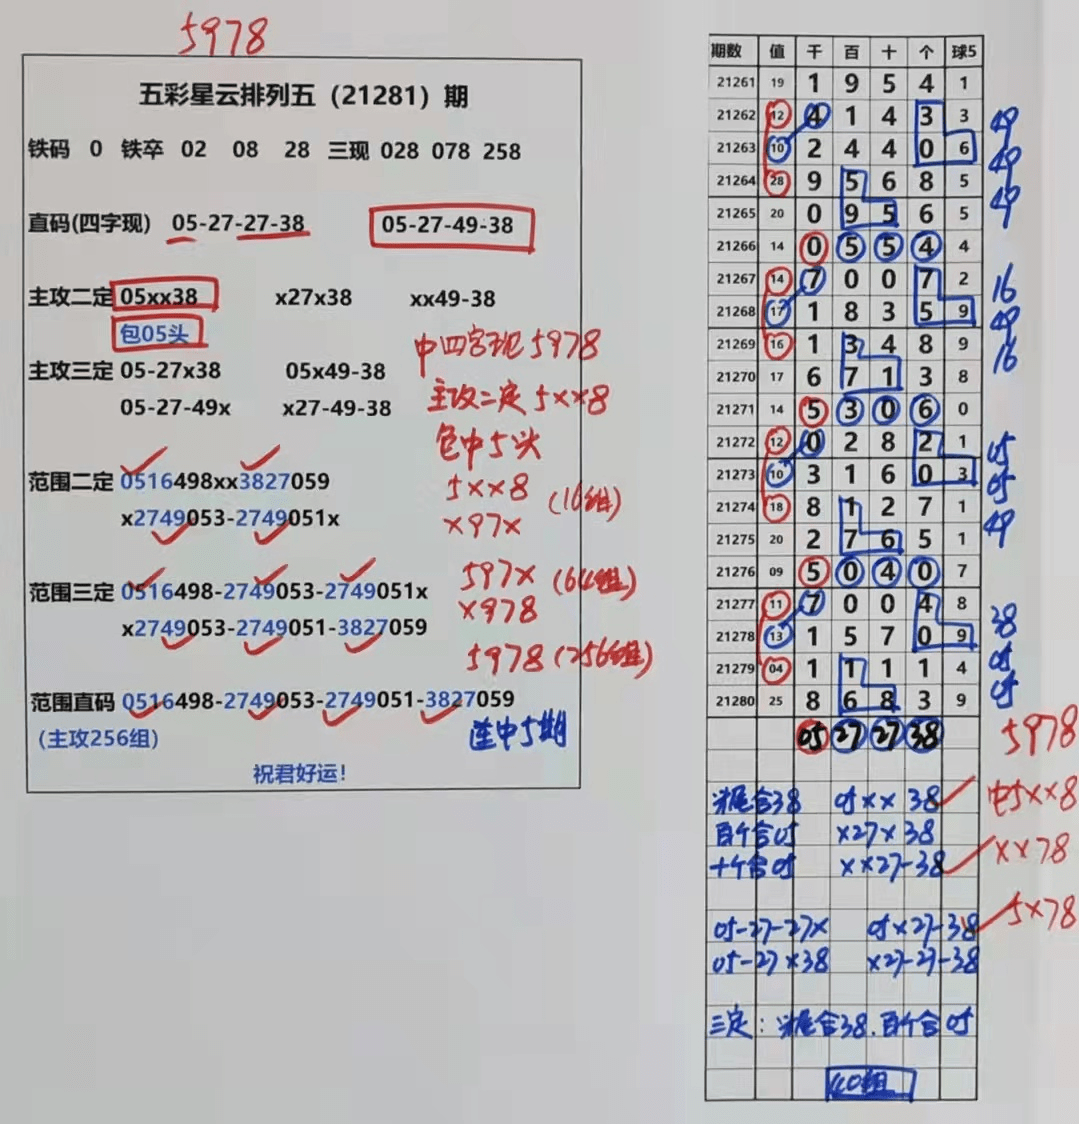 5978
五彩星云排列五（21281）期
铁码 0 铁卒 02 08 28 三现 028 078 258
直码(四字现) 05-27-27-38 05-27-49-38
主攻二定 05xx38 x27x38 xx49-38
包05头
中四字现5978
主攻三定 05-27x38 05x49-38
主攻二定5xx8
05-27-49x x27-49-38
包中5头
范围二定 0516498xx3827059
5xx8 (16组)
x2749053-2749051x
x97x
范围三定 0516498-2749053-2749051x
597x (64组)
x2749053-2749051-3827059
x978
5978 (256组)
范围直码 0516498-2749053-2749051-3827059
(主攻256组)
连中5期
祝君好运！
期数 值 千 百 十 个 球5
21261 19 1 9 5 4 1
21262 12 4 1 4 3 3 49
21263 10 2 4 4 0 6 49
21264 28 9 5 6 8 5 49
21265 20 0 9 5 6 5
21266 14 0 5 5 4 4
21267 14 7 0 0 7 2 16
21268 17 1 8 3 5 9 49
21269 16 1 3 4 8 9 16
21270 17 6 7 1 3 8
21271 14 5 3 0 6 0
21272 12 0 2 8 2 1 05
21273 10 3 1 6 0 3 05
21274 18 8 1 2 7 1 49
21275 20 2 7 6 5 1
21276 09 5 0 4 0 7
21277 11 7 0 0 4 8 38
21278 13 1 5 7 0 9 05
21279 04 1 1 1 1 4 05
21280 25 8 6 8 3 9
05 27 27 38 5978
合38 05xx38 中5xx8
百个合05 x27x38
十个合05 xx27-38 xx78
05-27-27x 05x27-38 5x78
05-27x38 x27-27-38
三定：合38.百个合05
40组